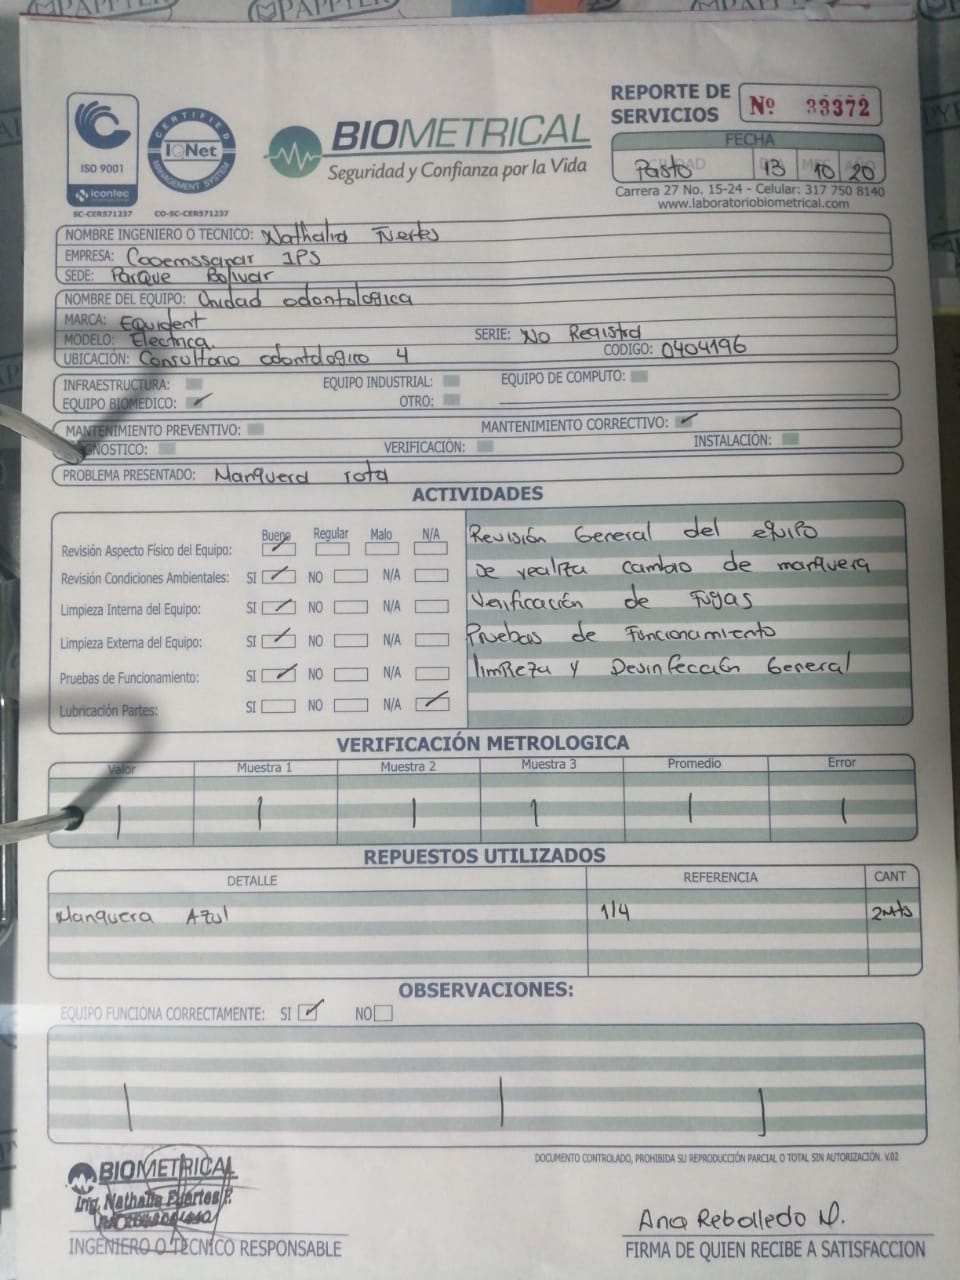 ISO 9001
icontec
SC-CER571237
CERTIFIED
IQNet
MANAGEMENT SYSTEM
CO-SC-CER571237
BIOMETRICAL
Seguridad y Confianza por la Vida
REPORTE DE SERVICIOS
Nº 33372
FECHA
Pasto 13 10 20
Carrera 27 No. 15-24 - Celular: 317 750 8140
www.laboratoriobiometrical.com
NOMBRE INGENIERO O TECNICO: Nathalia Fuertes
EMPRESA: Cooemssanar IPS
SEDE: Parque Bolivar
NOMBRE DEL EQUIPO: Unidad odontologica
MARCA: Equident
MODELO: Electrica. SERIE: No Registra
UBICACIÓN: Consultorio odontologico 4 CODIGO: 0404196
INFRAESTRUCTURA: EQUIPO INDUSTRIAL: EQUIPO DE COMPUTO:
EQUIPO BIOMEDICO: ✓ OTRO:
MANTENIMIENTO PREVENTIVO: MANTENIMIENTO CORRECTIVO: ✓
GNOSTICO: VERIFICACIÓN: INSTALACIÓN:
PROBLEMA PRESENTADO: Manguera rota
ACTIVIDADES
Bueno Regular Malo N/A
Revisión Aspecto Físico del Equipo:
Revisión Condiciones Ambientales: SI NO N/A
Limpieza Interna del Equipo: SI NO N/A
Limpieza Externa del Equipo: SI NO N/A
Pruebas de Funcionamiento: SI NO N/A
Lubricación Partes: SI NO N/A
Revisión General del equipo
se realiza cambio de manguera
Verificación de Fugas
Pruebas de Funcionamiento
limpieza y Desinfección General
VERIFICACIÓN METROLOGICA
Valor Muestra 1 Muestra 2 Muestra 3 Promedio Error
REPUESTOS UTILIZADOS
DETALLE REFERENCIA CANT
Manguera Azul 1/4 2Mts
OBSERVACIONES:
EQUIPO FUNCIONA CORRECTAMENTE: SI ✓ NO
DOCUMENTO CONTROLADO, PROHIBIDA SU REPRODUCCIÓN PARCIAL O TOTAL SIN AUTORIZACIÓN. V.02
BIOMETRICAL
Ing. Nathalia Fuertes P.
INGENIERO O TECNICO RESPONSABLE
Ana Rebolledo N.
FIRMA DE QUIEN RECIBE A SATISFACCION